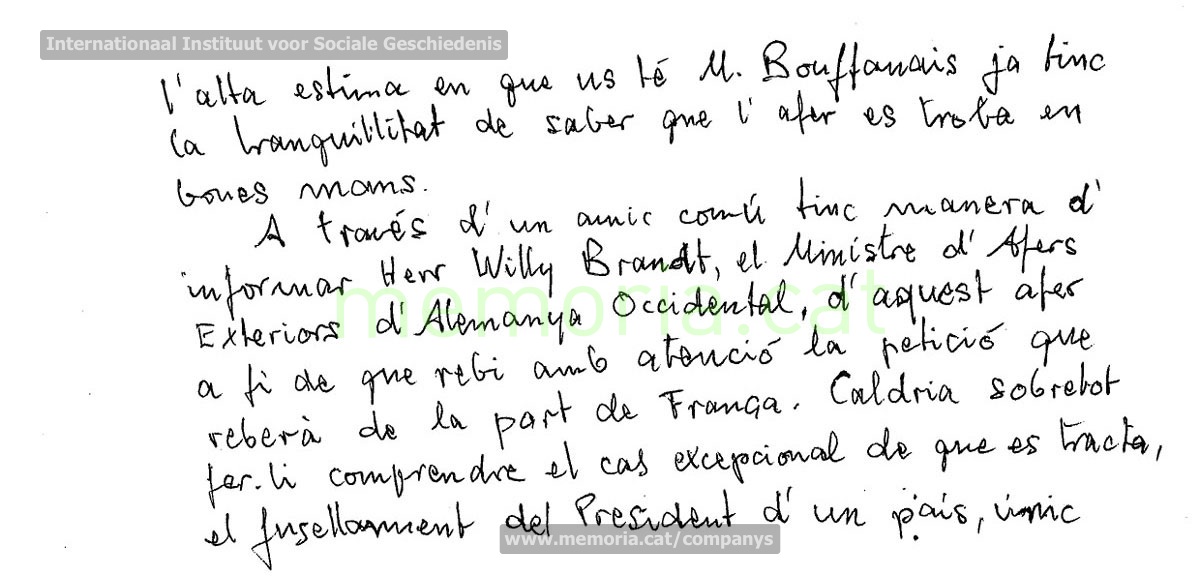 Internationaal Instituut voor Sociale Geschiedenis
l'alta estima en que us té M. Bouffanais ja tinc
la tranquil·litat de saber que l'afer es troba en
bones mans.
A través d'un amic comú tinc manera d'
informar Herr Willy Brandt, el Ministre d'Afers
Exteriors d'Alemanya Occidental, d'aquest afer
a fi de que rebi amb atenció la petició que
reberà de la part de França. Caldria sobretot
fer-li comprendre el cas excepcional de que es tracta,
el fusellament del President d'un país, únic
memoria.cat
www.memoria.cat/companys